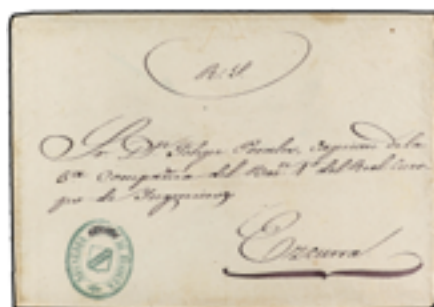 R. S.
Sr. Dn. Felipe Peralta, Capitan de la
6ª Compañia del Batn. 1º del Real Cuer-
po de Ingenieros
Ezcurra